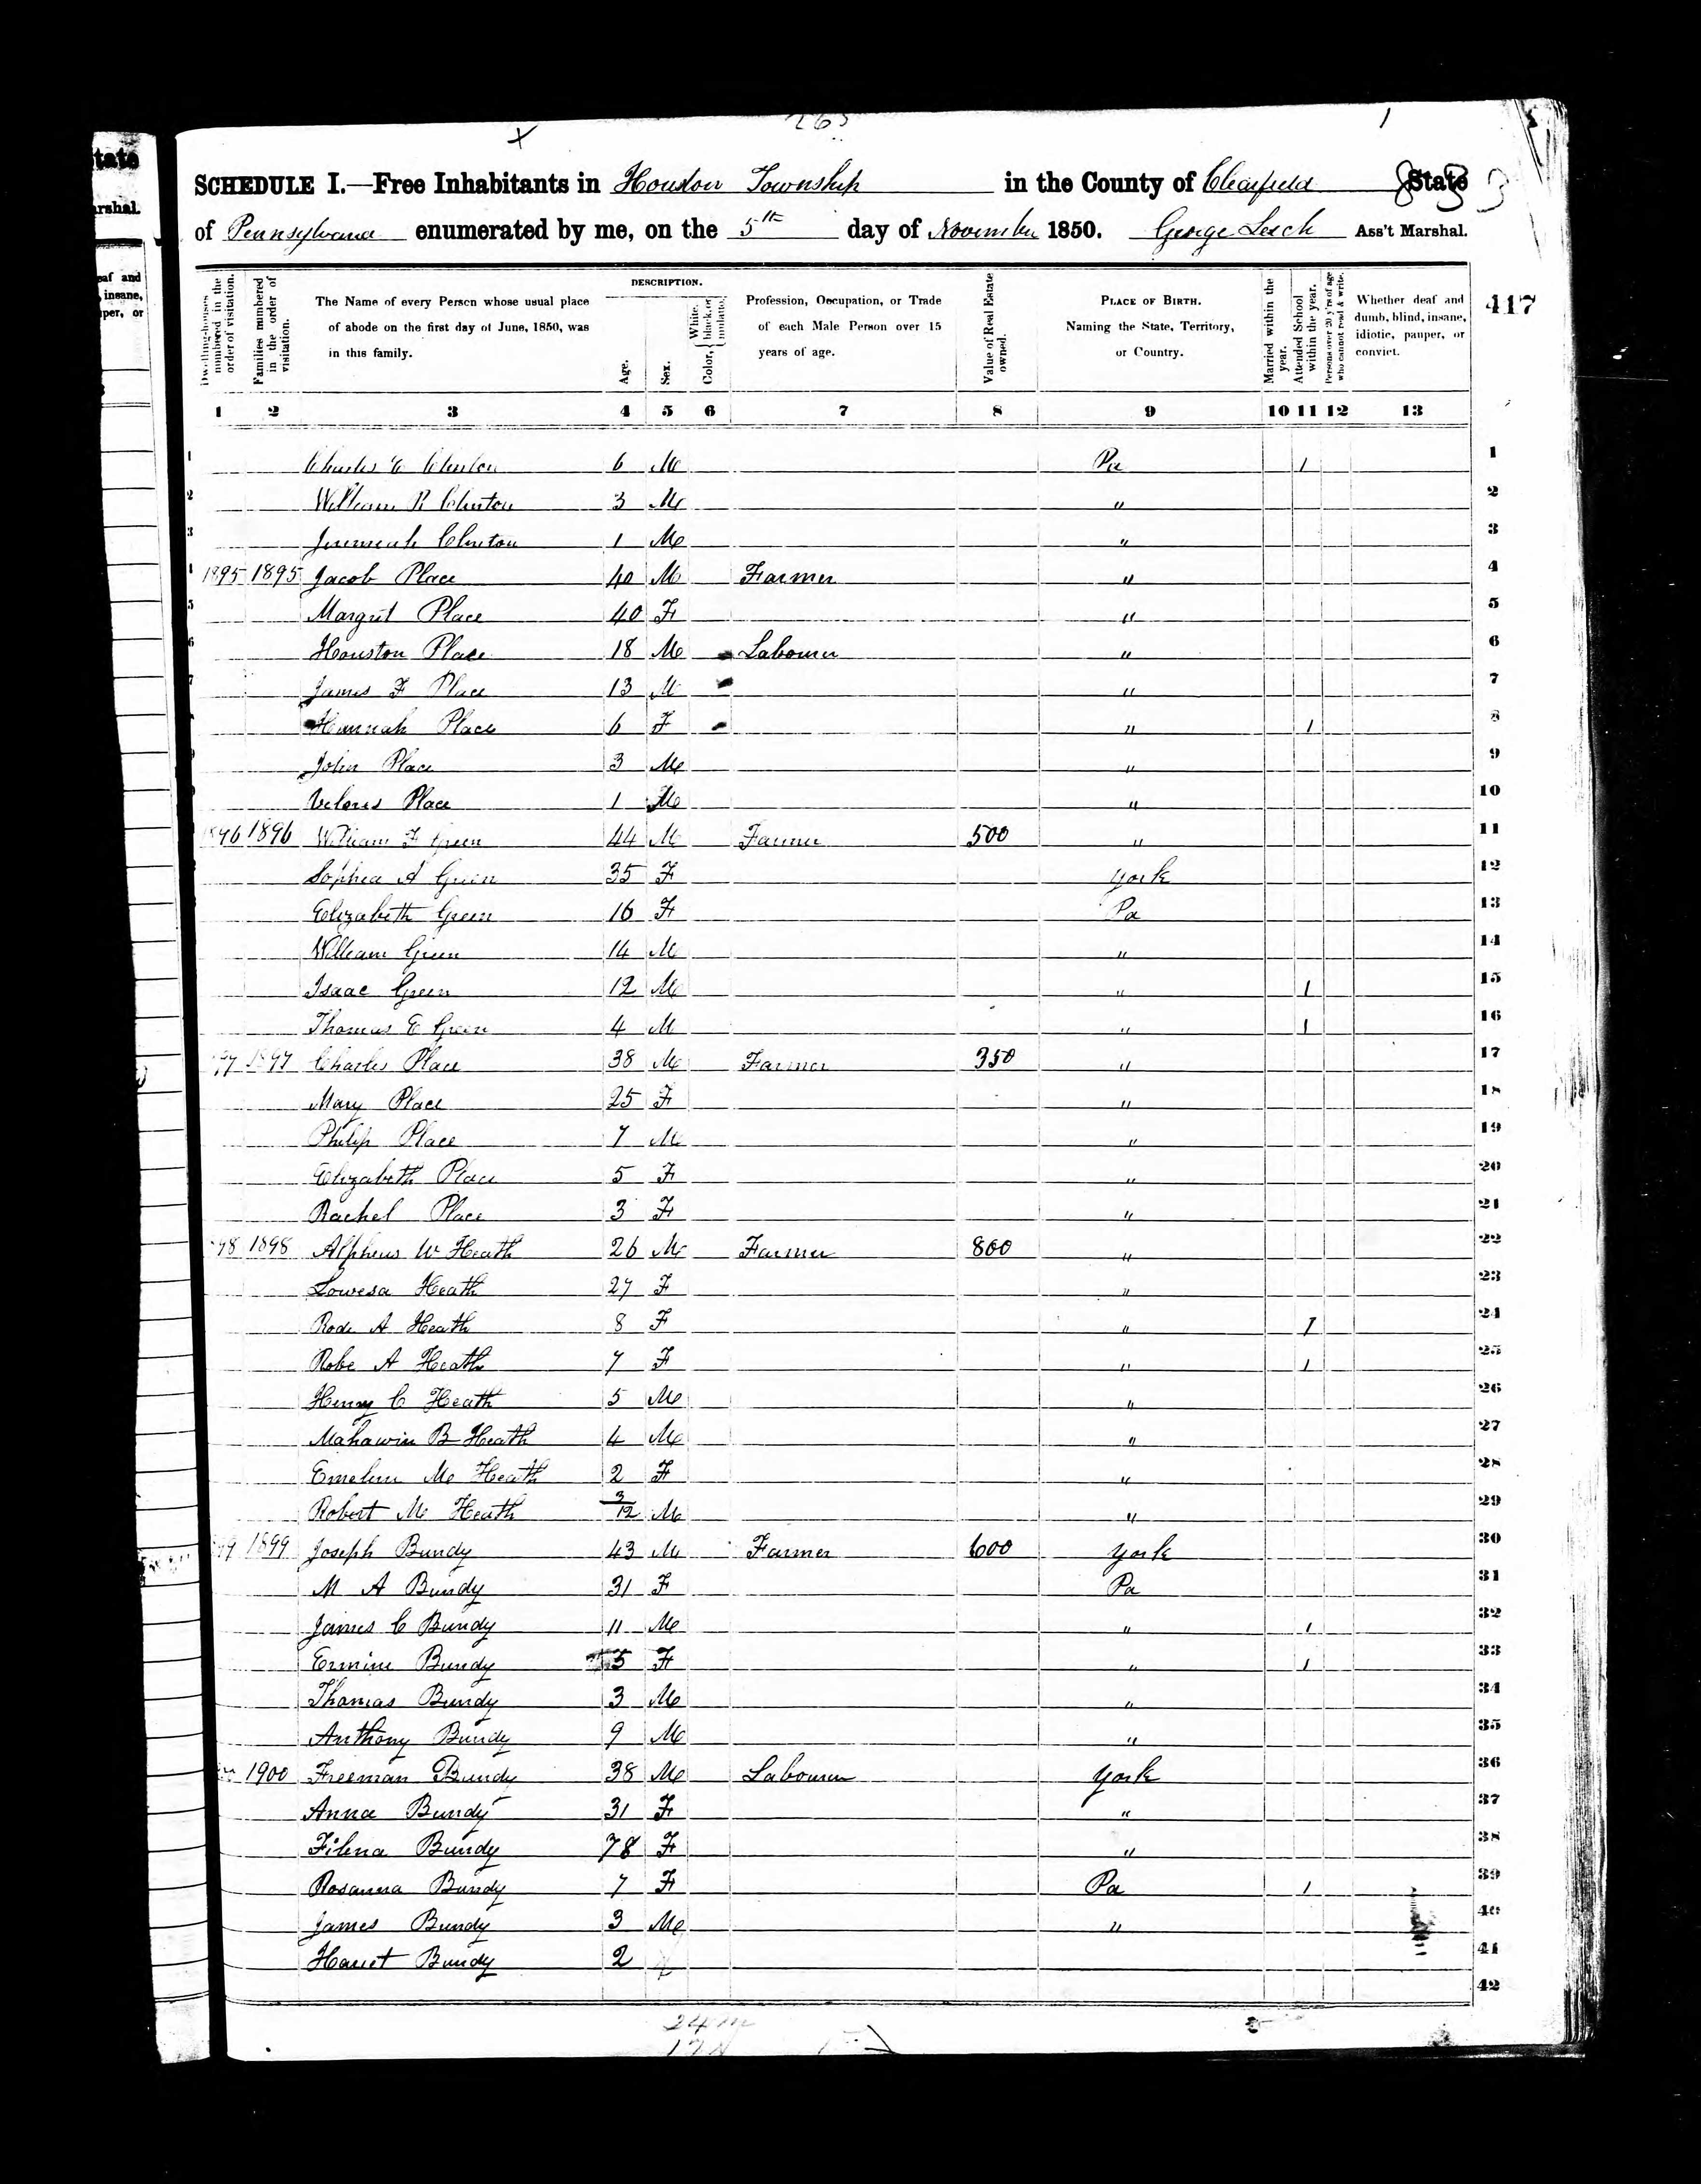 265
1
SCHEDULE I.—Free Inhabitants in Houston Township in the County of Clearfield State
of Pennsylvania enumerated by me, on the 5th day of November 1850. George Leech Ass't Marshal.
417
Dwelling-houses numbered in the order of visitation.
Families numbered in the order of visitation.
The Name of every Person whose usual place of abode on the first day of June, 1850, was in this family.
DESCRIPTION.
Age.
Sex.
Color, White, black, or mulatto.
Profession, Occupation, or Trade of each Male Person over 15 years of age.
Value of Real Estate owned.
PLACE OF BIRTH. Naming the State, Territory, or Country.
Married within the year.
Attended School within the year.
Persons over 20 y'rs of age who cannot read & write.
Whether deaf and dumb, blind, insane, idiotic, pauper, or convict.
1 2 3 4 5 6 7 8 9 10 11 12 13
1 Charles E Clinton 6 M Pa 1 1
2 William R Clinton 3 M " 2
3 Jeremiah Clinton 1 M " 3
1895 1895 Jacob Place 40 M Farmer " 4
5 Margret Place 40 F " 5
6 Houston Place 18 M Labourer " 6
7 James F Place 13 M " 7
Hannah Place 6 F " 1 8
John Place 3 M " 9
Place 1 M " 10
1896 1896 William F Green 44 M Farmer 500 " 11
Sophia A Green 35 F York 12
Elizabeth Green 16 F Pa 13
William Green 14 M " 14
Isaac Green 12 M " 1 15
Thomas E Green 4 M " 1 16
97 1897 Charles Place 38 M Farmer 350 " 17
Mary Place 25 F " 18
Philip Place 7 M " 19
Elizabeth Place 5 F " 20
Rachel Place 3 F " 21
98 1898 Alpheus W Heath 26 M Farmer 800 " 22
Lowesa Heath 27 F " 23
Rode A Heath 8 F " 1 24
Robe A Heath 7 F " 1 25
Henry C Heath 5 M " 26
Mahawin B Heath 4 M " 27
Emeline M Heath 2 F " 28
Robert M Heath 3/12 M " 29
99 1899 Joseph Bundy 43 M Farmer 600 York 30
M A Bundy 31 F Pa 31
James C Bundy 11 M " 1 32
Ermine Bundy 5 F " 1 33
Thomas Bundy 3 M " 34
Anthony Bundy 9 M " 35
1900 Freeman Bundy 38 M Labourer York 36
Anna Bundy 31 F " 37
Filena Bundy 78 F " 38
Rosanna Bundy 7 F Pa 1 39
James Bundy 3 M " 40
Harret Bundy 2 41
42
24 m